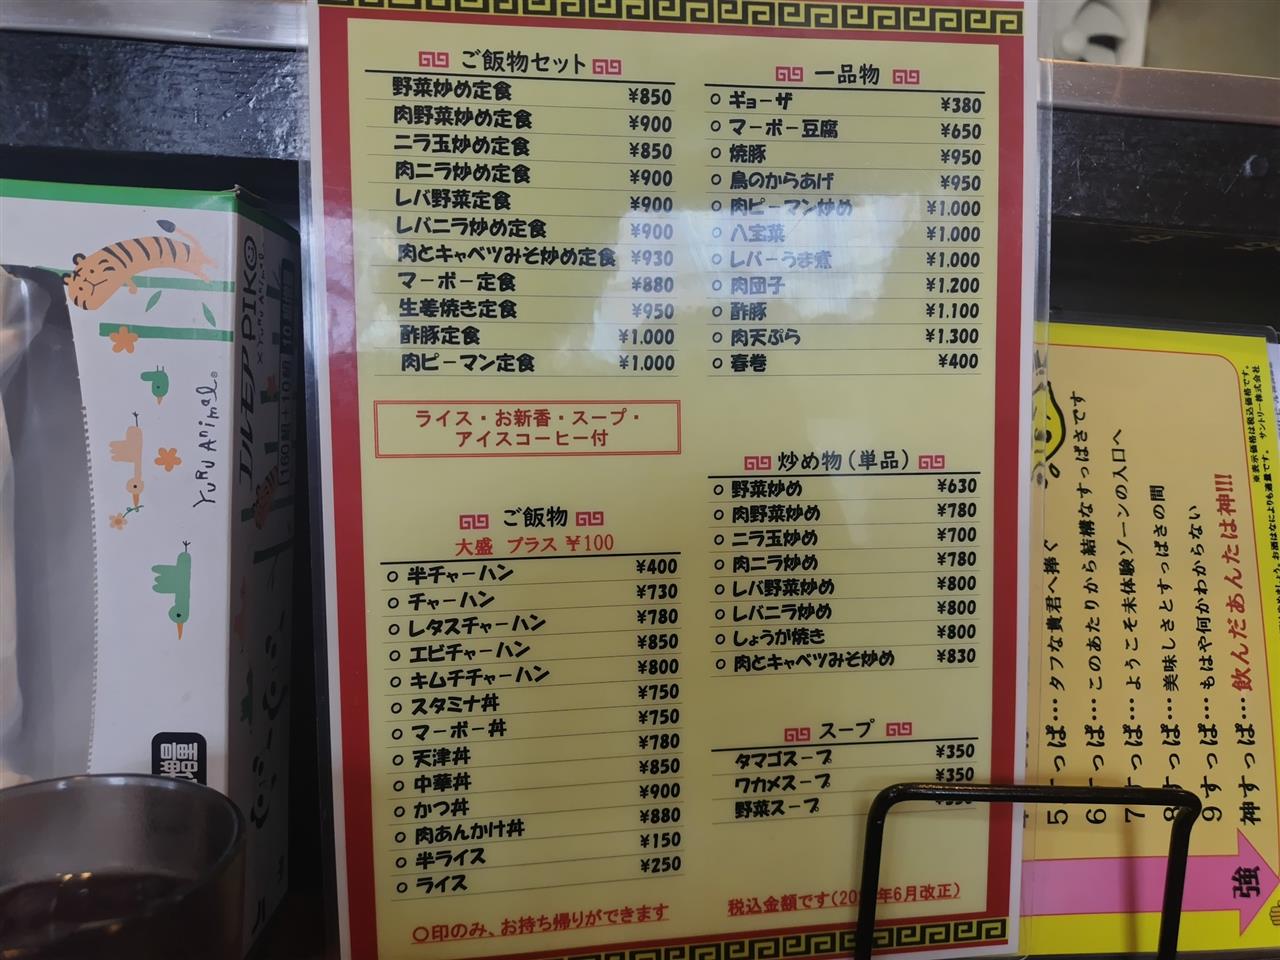 ご飯物セット
野菜炒め定食 ¥850
肉野菜炒め定食 ¥900
ニラ玉炒め定食 ¥850
肉ニラ炒め定食 ¥900
レバ野菜定食 ¥900
レバニラ炒め定食 ¥900
肉とキャベツみそ炒め定食 ¥930
マーボー定食 ¥880
生姜焼き定食 ¥950
酢豚定食 ¥1.000
肉ピーマン定食 ¥1.000
ライス・お新香・スープ・
アイスコーヒー付
ご飯物
大盛 プラス ¥100
○ 半チャーハン ¥400
○ チャーハン ¥730
○ レタスチャーハン ¥780
○ エビチャーハン ¥850
○ キムチチャーハン ¥800
○ スタミナ丼 ¥750
○ マーボー丼 ¥750
○ 天津丼 ¥780
○ 中華丼 ¥850
○ かつ丼 ¥900
○ 肉あんかけ丼 ¥880
○ 半ライス ¥150
○ ライス ¥250
○印のみ、お持ち帰りができます
一品物
○ ギョーザ ¥380
○ マーボー豆腐 ¥650
○ 焼豚 ¥950
○ 鳥のからあげ ¥950
○ 肉ピーマン炒め ¥1.000
○ 八宝菜 ¥1.000
○ レバーうま煮 ¥1.000
○ 肉団子 ¥1.200
○ 酢豚 ¥1.100
○ 肉天ぷら ¥1.300
○ 春巻 ¥400
炒め物(単品)
○ 野菜炒め ¥630
○ 肉野菜炒め ¥780
○ ニラ玉炒め ¥700
○ 肉ニラ炒め ¥780
○ レバ野菜炒め ¥800
○ レバニラ炒め ¥800
○ しょうが焼き ¥800
○ 肉とキャベツみそ炒め ¥830
スープ
タマゴスープ ¥350
ワカメスープ ¥350
野菜スープ
税込金額です(20 年6月改正)
エルモアPIKO
×YURU Animal
160組+10組 10組増量
YURU Animal
増量
※表示価格は税込価格です。
サントリー株式会社
5すっぱ…タフな貴君へ捧ぐ
6すっぱ…このあたりから結構なすっぱさです
7すっぱ…ようこそ未体験ゾーンの入口へ
8すっぱ…美味しさとすっぱさの間
9すっぱ…もはや何かわからない
神すっぱ…飲んだあんたは神!!!
強